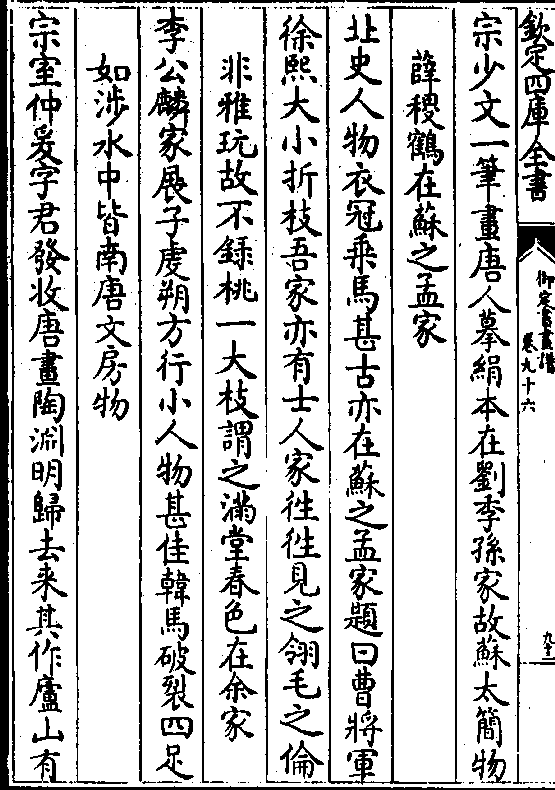 欽定四庫全書
御定書畫譜
卷九十六
宗少文一筆畫唐人摹絹本在劉季孫家故蘇太簡物
薛稷鶴在蘇之孟家
北史人物衣冠乘馬甚古亦在蘇之孟家題曰曹將軍
徐熙大小折枝吾家亦有士人家往往見之翎毛之倫
非雅玩故不錄桃一大枝謂之滿堂春色在余家
李公麟家展子虔朔方行小人物甚佳韓馬破裂四足
如涉水中皆南唐文房物
宗室仲爰字君發收唐畫陶淵明歸去來其作廬山有